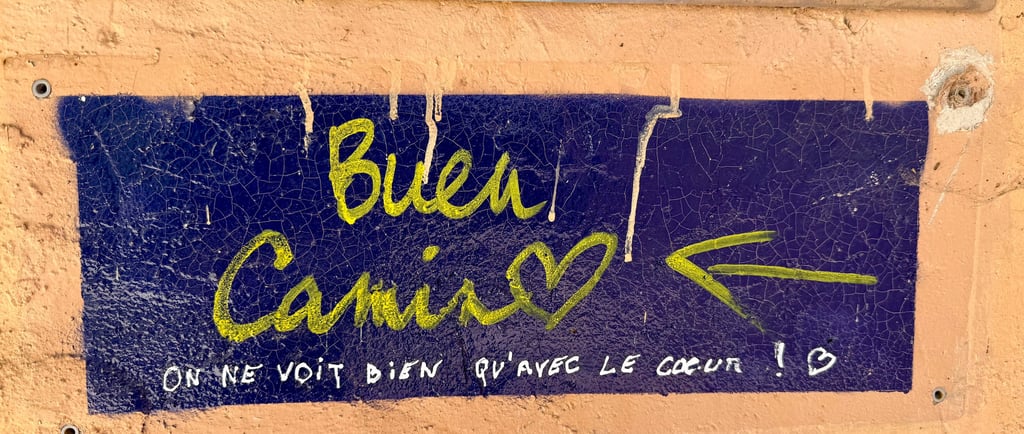 Buen
Camin♡ ←
ON NE VOIT BIEN QU'AVEC LE COEUR ! ♡